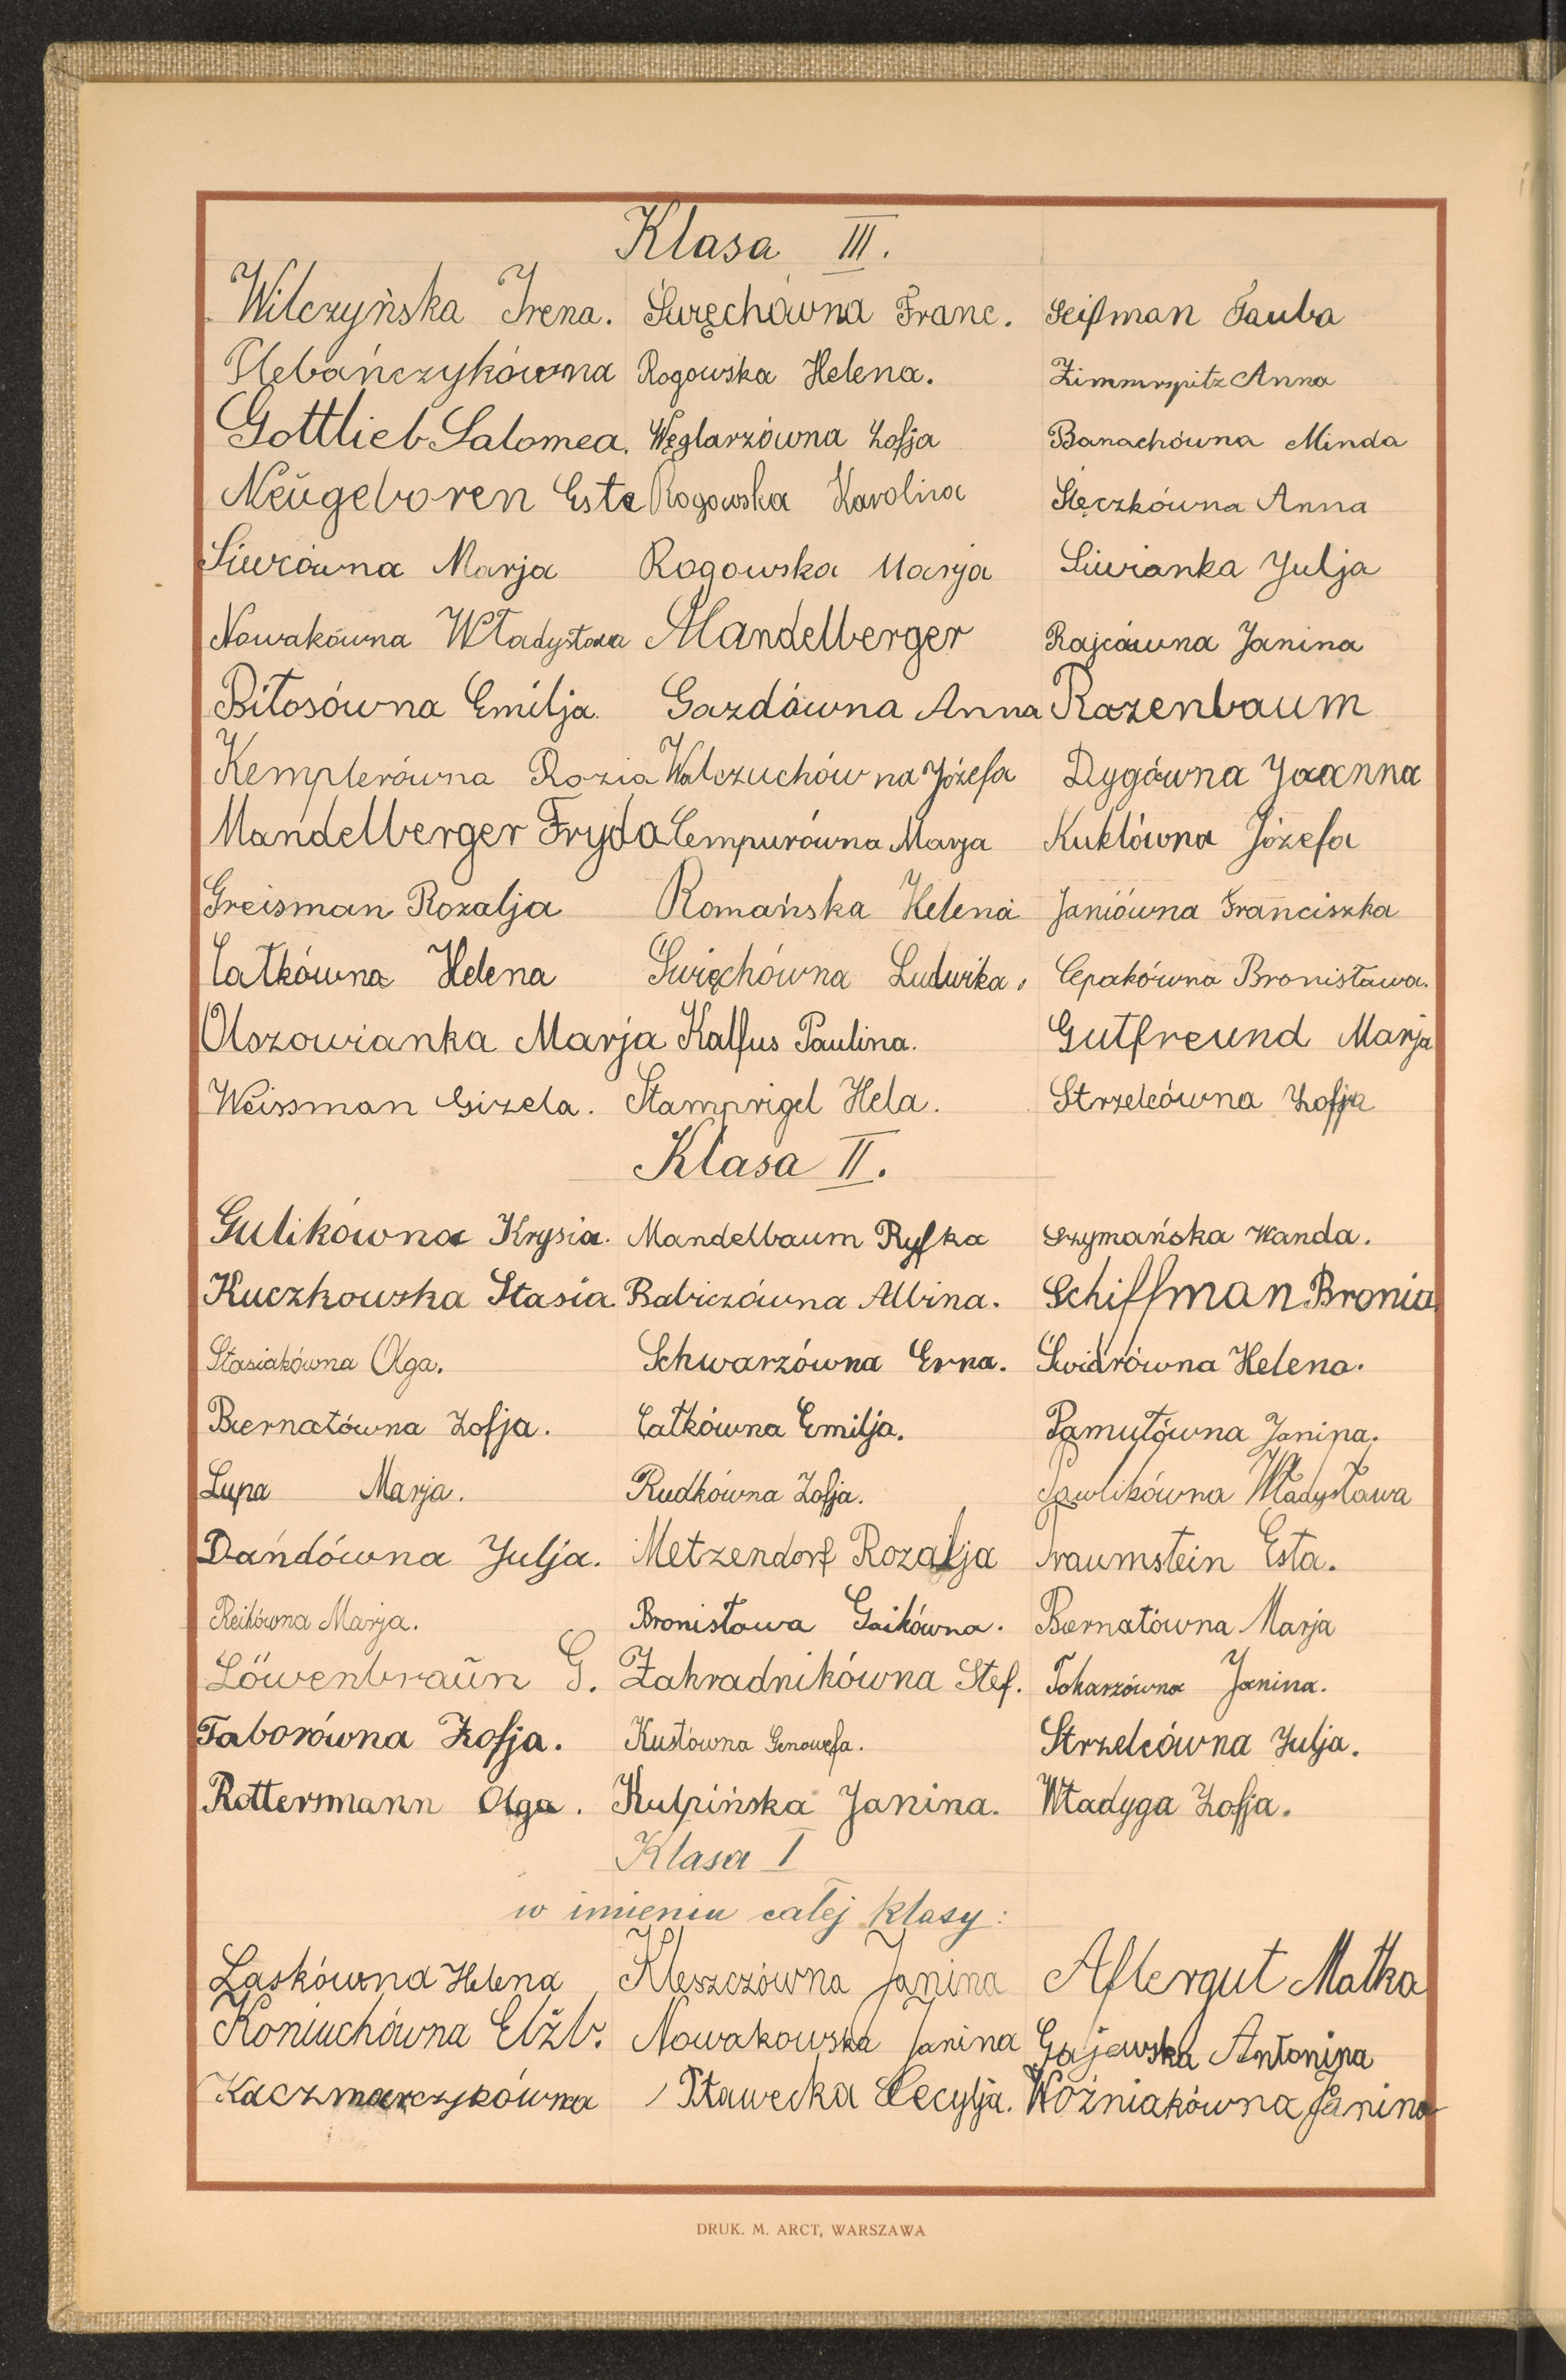 Klasa III.
Wilczyńska Irena. Święchówna Franc. Seifman Tauba
Plebańczykówna Rogowska Helena. Zimmrspitz Anna
Gottlieb Salomea. Węglarzówna Zofja Banachówna Minda
Neŭgeboren Este Rogowska Karolina Ślęczkówna Anna
Siwcówna Marja Rogowska Marja Siwianka Julja
Nowakówna Władysława Mandelberger Rajcówna Janina
Bitosówna Emilja. Gazdówna Anna Rozenbaum
Kemplerówna Rozia Walczuchówna Józefa Dygówna Joanna
Mandelberger Fryda Cempurówna Marja Kuklówna Józefa
Greisman Rozalja Romańska Helena Janiówna Franciszka
Całkówna Helena Święchówna Ludwika. Cepakówna Bronisława.
Olszowianka Marja Kalfus Paulina. Gutfreund Marja
Weissman Gizela. Stamprigel Hela. Strzelcówna Zofja
Klasa II.
Gulikówna Krysia. Mandelbaum Ryfka Szymańska Wanda.
Kuczkowska Stasia. Babiczówna Albina. Schiffman Bronia.
Stasiakówna Olga. Schwarzówna Erna. Świdrówna Helena.
Biernatówna Zofja. Całkówna Emilja. Pamułówna Janina.
Lupa Marja. Rudkówna Zofja. Pawlikówna Władysława
Dańdówna Julja. Metzendorf Rozalja Traumstein Esta.
Reikówna Marja. Bronisława Gaikówna. Biernatówna Marja
Löwenbraŭn G. Zahradnikówna Stef. Tokarzówna Janina.
Taborówna Zofja. Kustówna Genowefa. Strzelcówna Julja.
Rottermann Olga. Kulpińska Janina. Władyga Zofja.
Klasa I
w imieniu całej klasy:
Laskówna Helena Kleszczówna Janina Aftergut Małka
Koniuchówna Elżb. Nowakowska Janina Gajewska Antonina
Kaczmarczykówna Pławecka Cecylja. Woźniakówna Janina
DRUK. M. ARCT, WARSZAWA